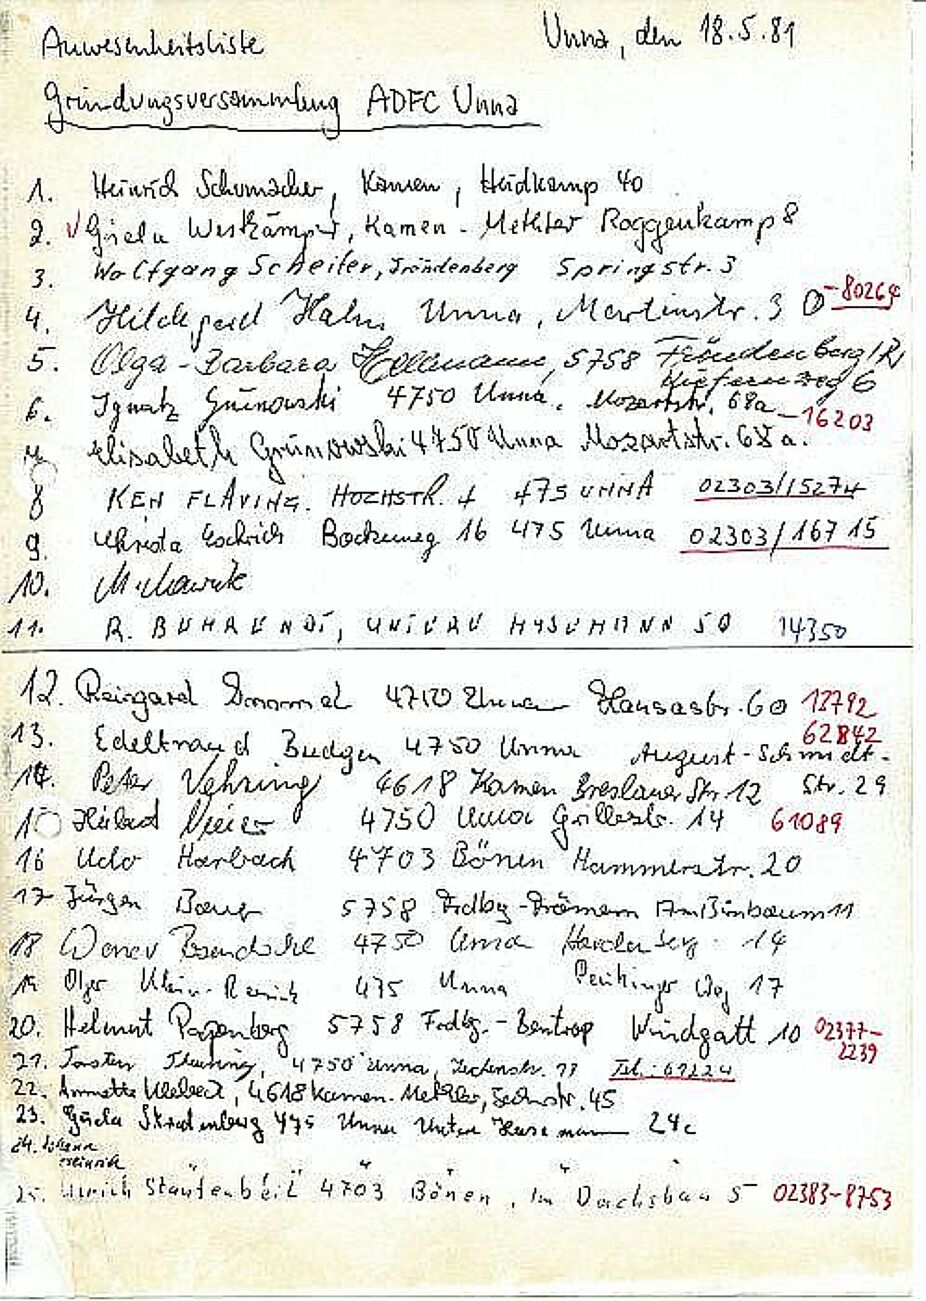 Anwesenheitsliste Unna, den 18.5.81
Gründungsversammlung ADFC Unna
1. Heinrich Schumacher, Kamen, Heidkamp 40
2. Gisela Westkämper, Kamen - Methler Roggenkamp 8
3. Wolfgang Scheiter, Fröndenberg Springstr. 3
4. Hildegard Hahn Unna, Martinstr. 3 - 80264
5. Olga - Barbara Hellmann, 5758 Fröndenberg/R,
Kiefernweg 6
6. Ignatz Grünowski 4750 Unna. Mozartstr. 68a - 16203
7. Elisabeth Grünowski 4750 Unna Mozartstr. 68a.
8 KEN FLAVING. HOCHSTR. 4 475 UNNA 02303/15274
9. Christa Eschrich 16 475 Unna 02303/16715
10.
11. R. 50 14350
12. Reingard 4750 Unna Hansastr. 60 12792
13. Edeltraud Budgen 4750 Unna August-Schmidt- 62842
Str. 29
14. Peter Vehring 4618 Kamen Breslauer Str. 12
15 4750 Unna Grillostr. 14 61089
16 Udo Harbach 4703 Bönen Hammerstr. 20
17 Jürgen 5758 Frdbg-Frömern Am Birnbaum 11
18 Werner 4750 Unna 14
19 475 Unna Weg 17
20. Helmut Papenberg 5758 Frdbg.-Bentrop Windgatt 10 02377-
2239
21. Torsten 4750 Unna, Tel.:
22. Annette 4618 Kamen-Methler, 45
23. Gisela 475 Unna Unter 24c
24. Johann
Heinrich
25. Ulrich Stautenbeil 4703 Bönen, Im Dachsbau 5 02383-8753